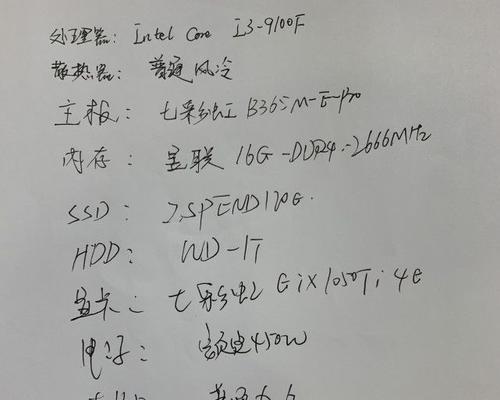 处理器: Intel Core i3-9100F
散热器: 普通风冷
主板: 七彩虹 B365M-E-Pro
内存: 昱联 16G-DDR4-2666MHz
SSD: 120G.
HDD: WD-1T
显卡: 七彩虹 GTX1050Ti 4G
电子: 额定450W
普通